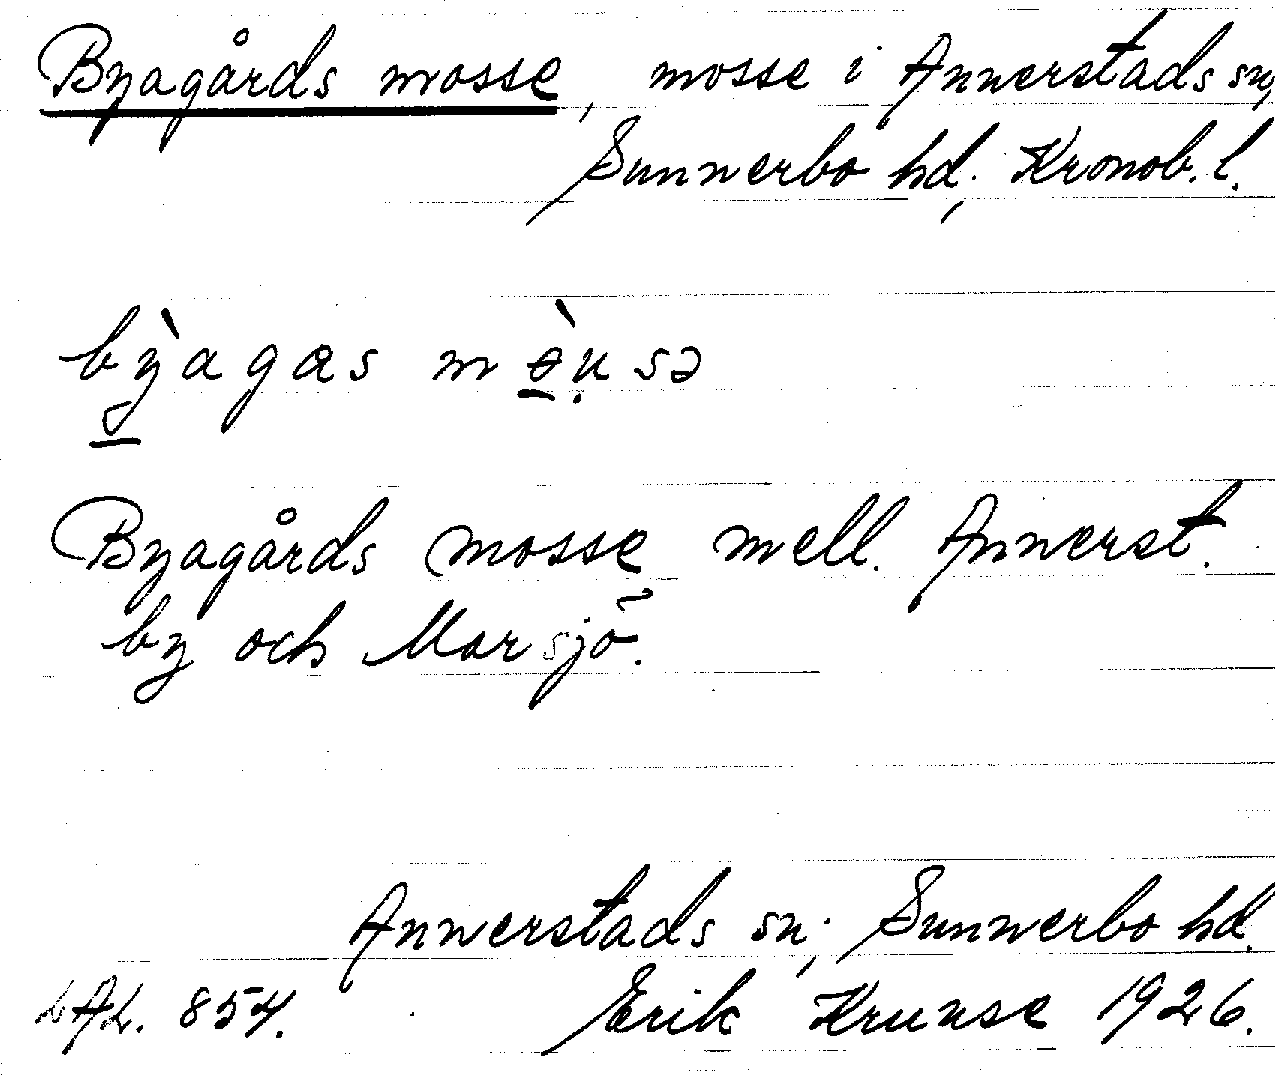 Byagårds mosse, mosse i Annerstads sn,
Sunnerbo hd, Kronob. l.
Byagårds mosse mell. Annerst.
by och Marsjö.
Annerstads sn, Sunnerbo hd.
LAL. 854. Erik Krunse 1926.